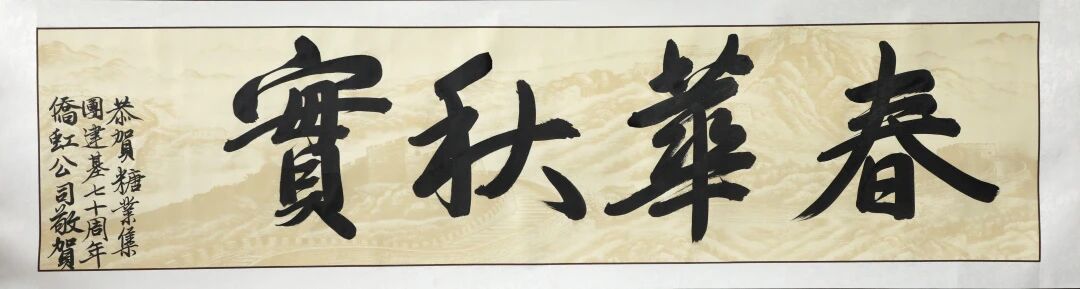 春華秋實
恭賀糖業集
團建基七十周年
僑虹公司敬賀